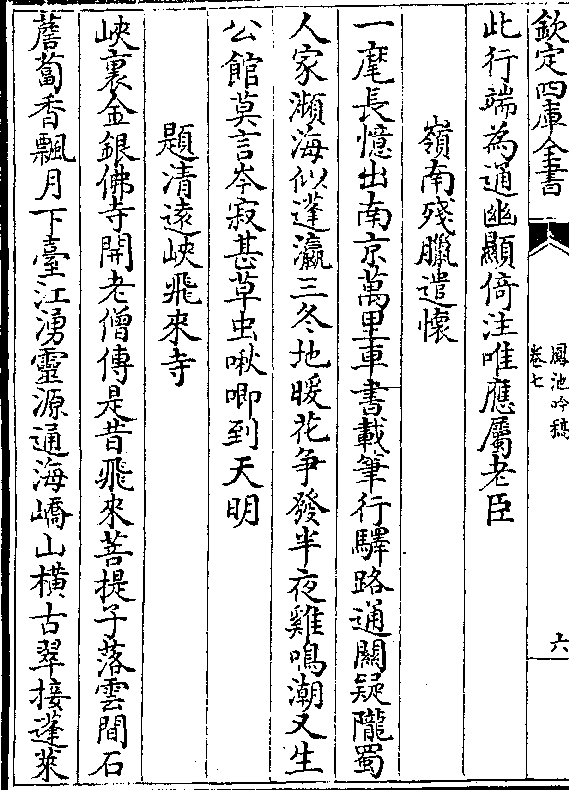 欽定四庫全書
鳳池吟稿
卷七
六
此行端為通幽顯倚注唯應屬老臣
嶺南殘臘遣懷
一麾長憶出南京萬里車書載筆行驛路通關疑隴蜀
人家瀕海似蓬瀛三冬地暖花爭發半夜雞鳴潮又生
公館莫言岑寂甚草虫啾唧到天明
題清遠峽飛來寺
峽裏金銀佛寺開老僧傳是昔飛來菩提子落雲間石
薝蔔香飄月下臺江湧靈源通海嶠山橫古翠接蓬萊